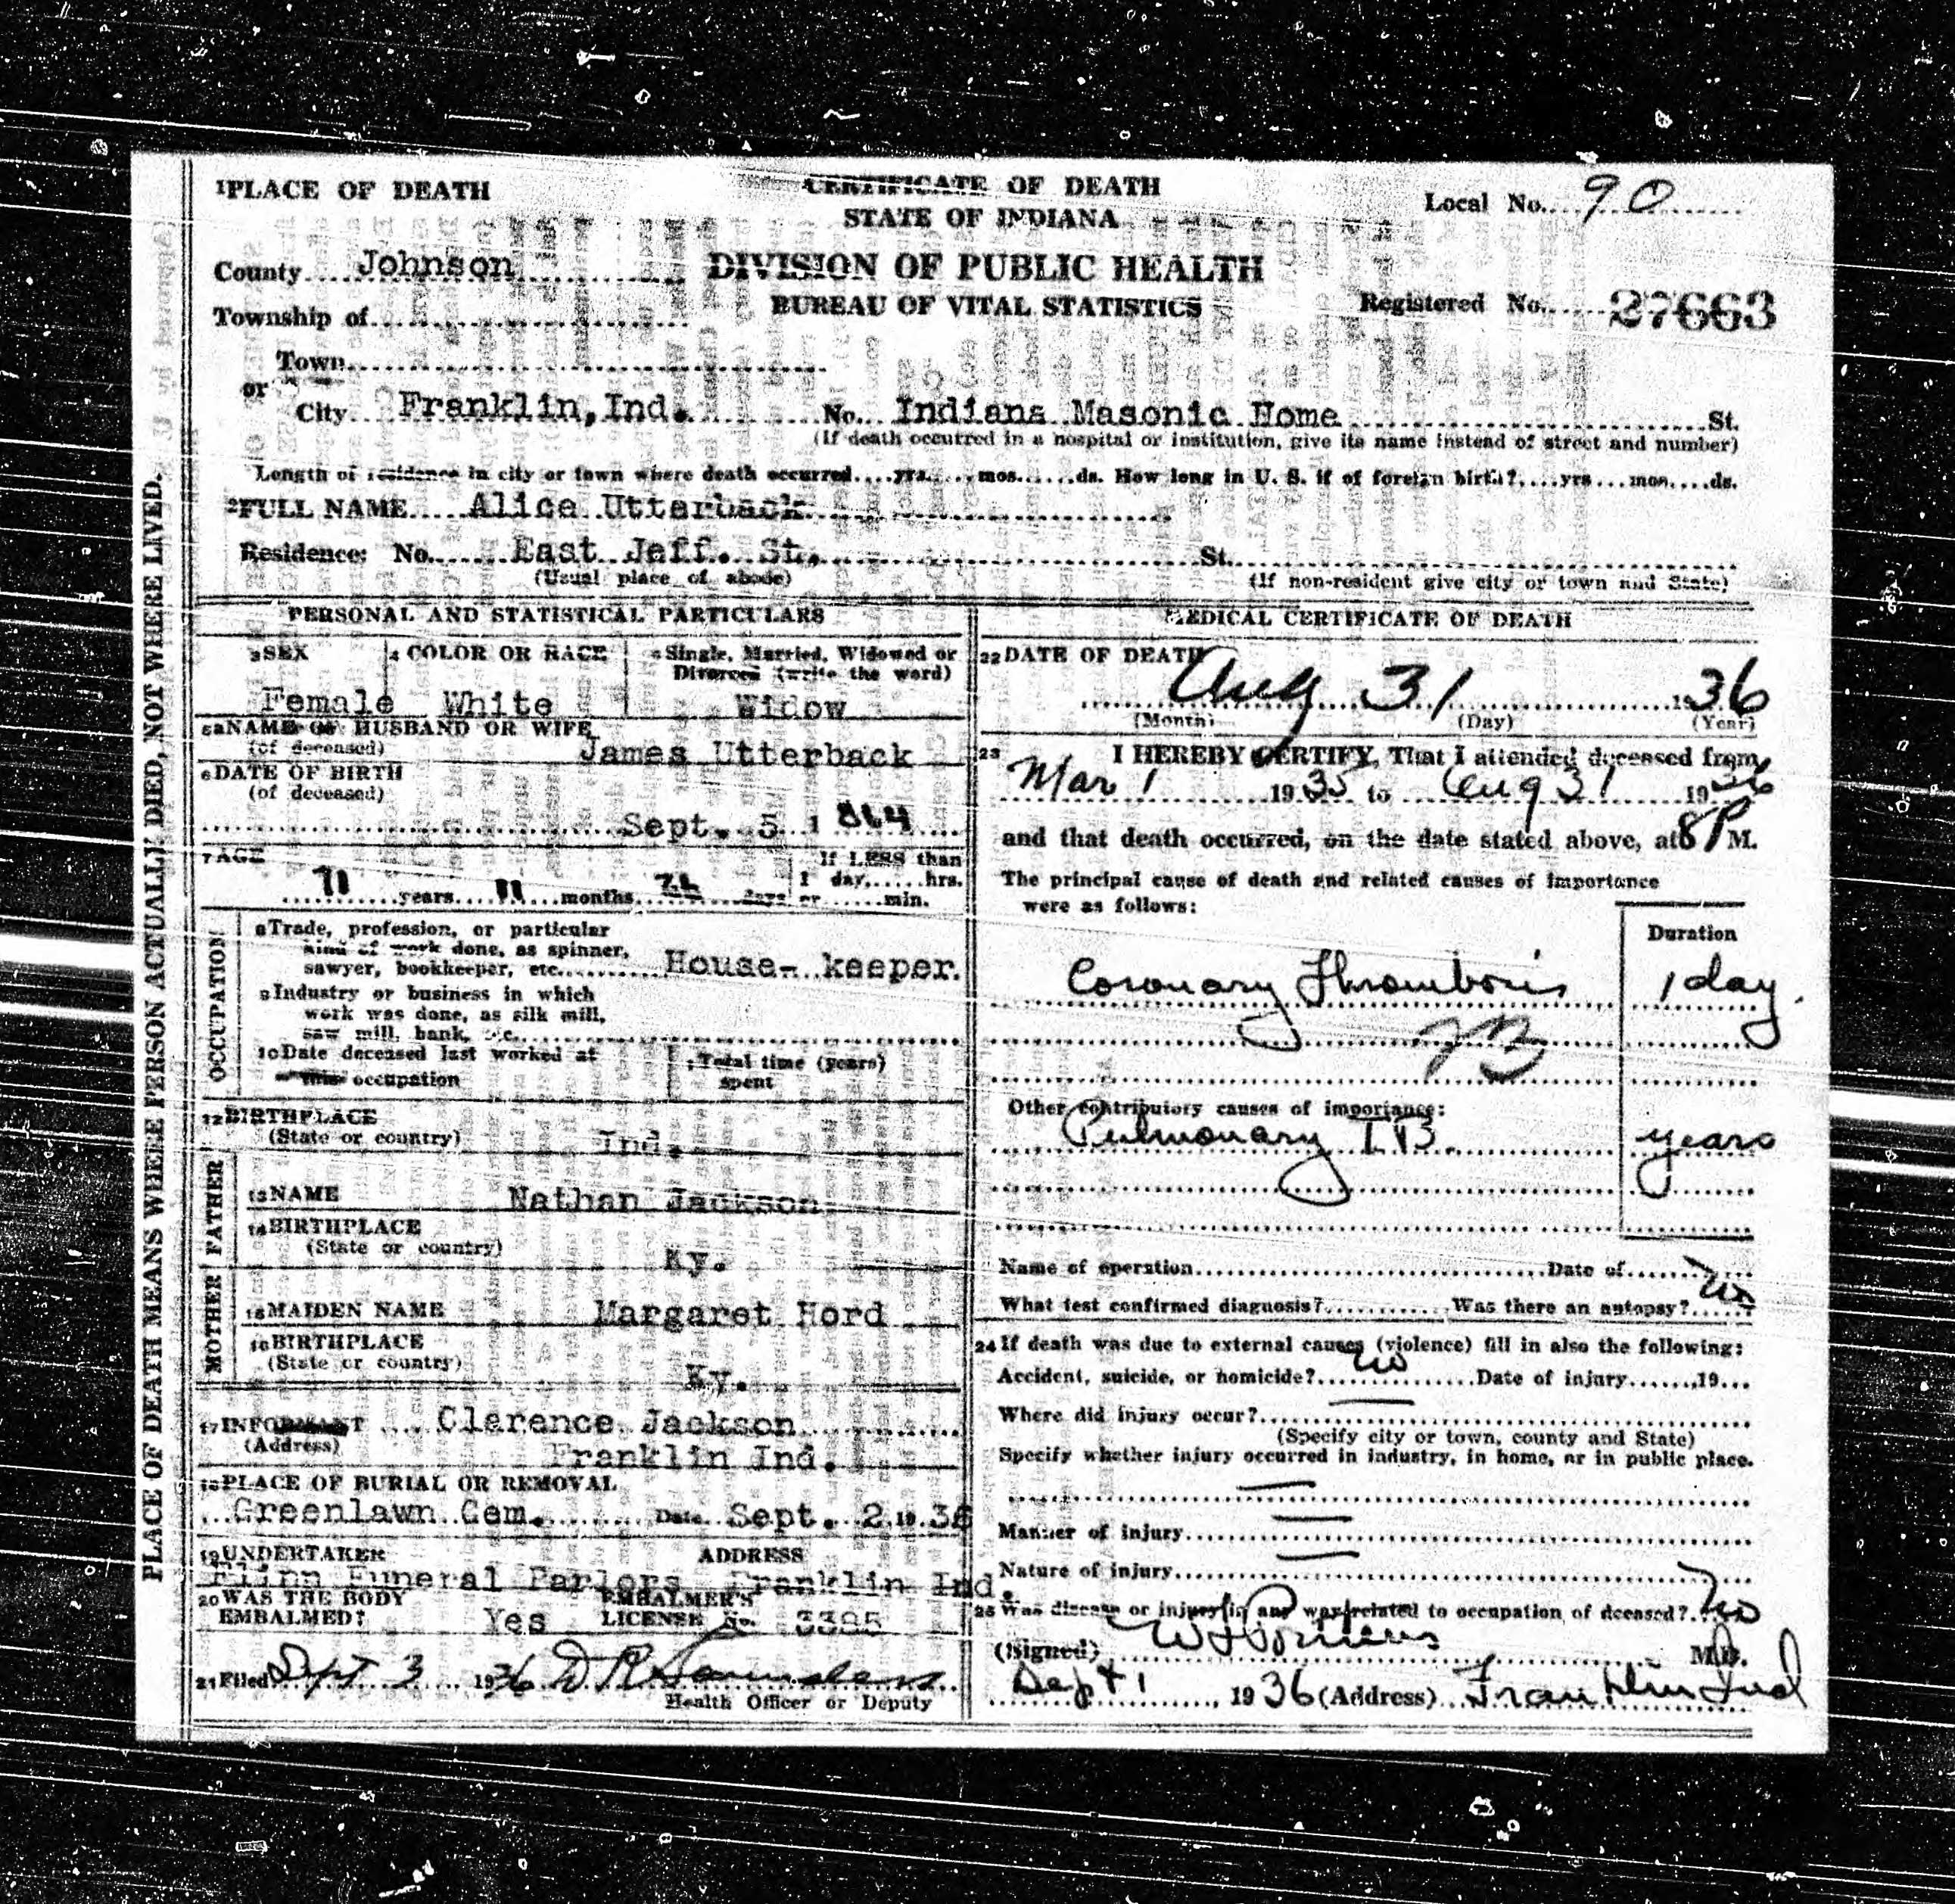 PLACE OF DEATH MEANS WHERE PERSON ACTUALLY DIED, NOT WHERE LIVED.
1PLACE OF DEATH
CERTIFICATE OF DEATH
STATE OF INDIANA
Local No. 90
County Johnson
DIVISION OF PUBLIC HEALTH
BUREAU OF VITAL STATISTICS
Registered No. 27663
Township of
Town
or
City Franklin, Ind. No. Indiana Masonic Home St.
(If death occurred in a hospital or institution, give its name instead of street and number)
Length of residence in city or town where death occurred....yrs......mos......ds. How long in U. S. if of foreign birth?....yrs....mos....ds.
2FULL NAME Alice Utterback
Residence: No. East Jeff. St. St.
(Usual place of abode)
(If non-resident give city or town and State)
PERSONAL AND STATISTICAL PARTICULARS
3SEX
4 COLOR OR RACE
5 Single, Married, Widowed or
Divorced (write the word)
Female White Widow
5aNAME OF HUSBAND OR WIFE
(of deceased)
James Utterback
6DATE OF BIRTH
(of deceased)
Sept. 5 1864
7AGE
If LESS than
1 day,......hrs.
71 years 11 months 26 days or ......min.
OCCUPATION
8Trade, profession, or particular
kind of work done, as spinner,
sawyer, bookkeeper, etc. House- keeper.
9Industry or business in which
work was done, as silk mill,
saw mill, bank, etc.
10Date deceased last worked at
this occupation
Total time (years)
spent
12BIRTHPLACE
(State or country)
Ind.
FATHER
13NAME Nathan Jackson
14BIRTHPLACE
(State or country)
Ky.
MOTHER
15MAIDEN NAME Margaret Hord
16BIRTHPLACE
(State or country)
Ky.
17INFORMANT Clarence Jackson
(Address) Franklin Ind.
18PLACE OF BURIAL OR REMOVAL
Greenlawn Cem. Date Sept. 2 19 36
19UNDERTAKER ADDRESS
Flinn Funeral Parlors Franklin Ind.
20WAS THE BODY
EMBALMED? Yes
EMBALMER'S
LICENSE No. 3385
21Filed Sept 3 1936
Health Officer or Deputy
MEDICAL CERTIFICATE OF DEATH
22DATE OF DEATH
Aug 31 1936
(Month) (Day) (Year)
23 I HEREBY CERTIFY, That I attended deceased from
Mar 1 1935 to Aug 31 1936
and that death occurred, on the date stated above, at 8 P M.
The principal cause of death and related causes of importance
were as follows:
Duration
Coronary Thrombosis 1 day.
Other contributory causes of importance:
Pulmonary T.B. years
Name of operation Date of
What test confirmed diagnosis? Was there an autopsy? no
24If death was due to external causes (violence) fill in also the following:
Accident, suicide, or homicide? no Date of injury......,19...
Where did injury occur?
(Specify city or town, county and State)
Specify whether injury occurred in industry, in home, or in public place.
Manner of injury
Nature of injury
25 Was disease or injury in any way related to occupation of deceased? no
(Signed) M.D.
Sept 1, 1936 (Address) Franklin Ind